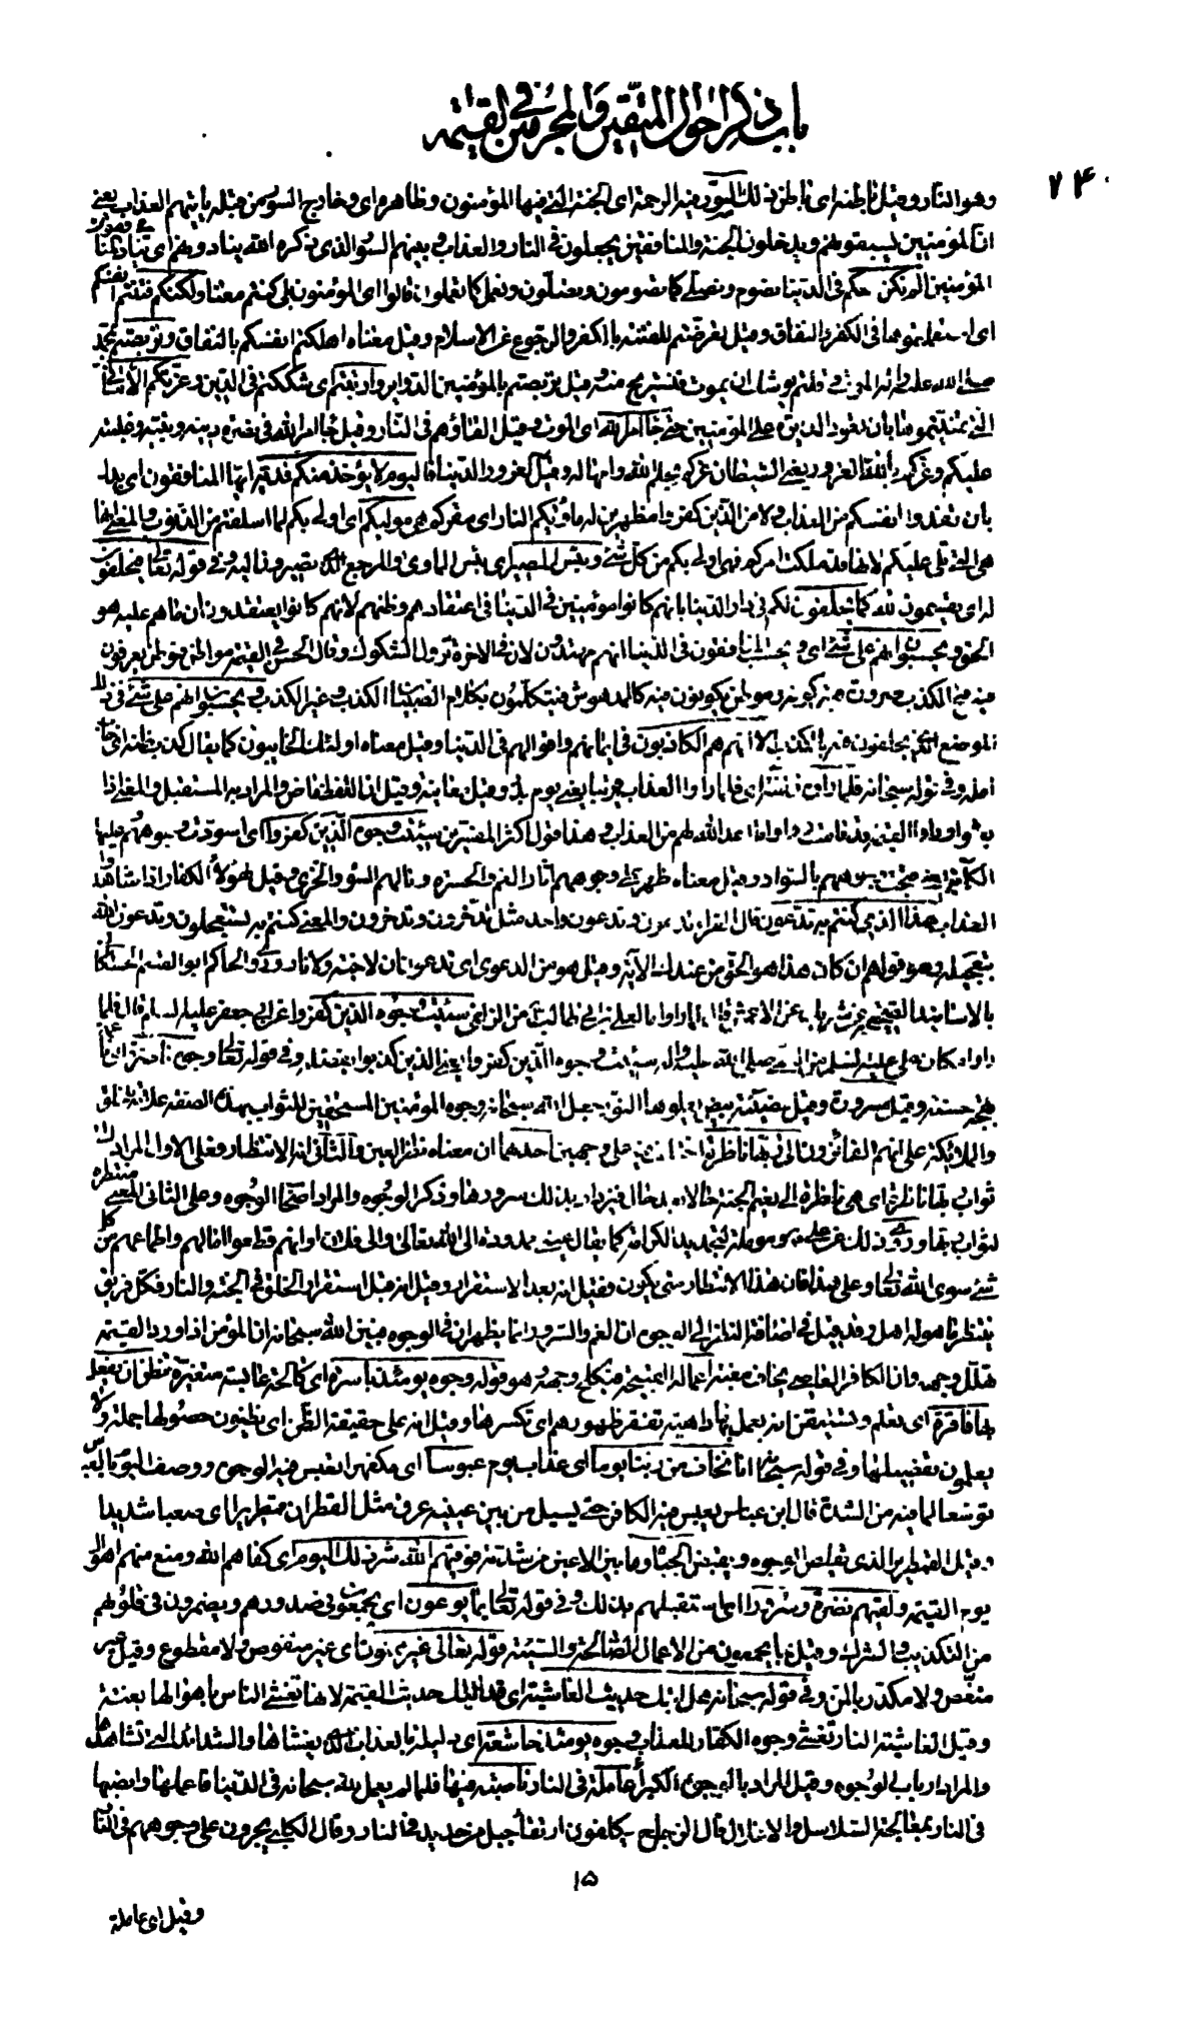 باب ذكر احوال المتقين والمجرمين في القيمة
٧٤
وهو النار وقيل باطنه اى باطن ذلك السور فيه الرحمة اى الجنة التى فيها المؤمنون وظاهره اى وخارج السور من قبله ياتيهم العذاب يعنى
ان المؤمنين يسبقونهم ويدخلون الجنة والمنافقين يجعلون فى النار والعذاب وبينهم السور الذى ذكره الله ينادونهم اى ينادى المنافقون
المؤمنين الم نكن معكم فى الدنيا نصوم ونصلى كما تصومون وتصلون ونعمل كما تعملون قالوا اى المؤمنون بلى كنتم معنا ولكنكم فتنتم انفسكم
اى استعملتموها فى الكفر والنفاق وقيل تعرضتم للفتنة بالكفر والرجوع عن الاسلام وقيل معناه اهلكتم انفسكم بالنفاق وتربصتم بمحمد
صلى الله عليه واله الموت وقلتم يوشك ان يموت فنستريح منه وقيل تربصتم بالمؤمنين الدواير وارتبتم اى شككتم فى الدين وغرتكم الامانى
التى تمنيتموها بان تعود الدايرة على المؤمنين حتى جاء امر الله اى الموت وقيل القاؤهم فى النار وقيل جاء امر الله فى نصرة دينه ونبيه وغلبته
عليكم وغركم بالله الغرور يعنى الشيطان غركم بحلم الله وامهاله وقيل الغرور الدنيا فاليوم لا يؤخذ منكم فدية ايها المنافقون اى بدل
بان تفدوا انفسكم من العذاب ولا من الذين كفروا مظهرين له ماويكم النار اى مقركم هى موليكم اى اولى بكم لما اسلفتم من الذنوب والمعنى انها
هى التى تلى عليكم لانها قد ملكت امركم فهى اولى بكم من كل شئ وبئس المصير اى بئس الماوى والمرجع الذى تصيرون اليه وفى قوله تعالى فيحلفون
له اى يقسمون لله كما يحلفون لكم فى دار الدنيا بانهم كانوا مؤمنين فى الدنيا فى اعتقادهم وظنهم لانهم كانوا يعتقدون ان ما هم عليه هو
الحق ويحسبون انهم على شئ اى ويحسب المنافقون فى الدنيا انهم مهتدون لان فى الاخرة تزول الشكوك وقال الحسن فى القيمة مواطن فموطن يعرفون
فيه قبح الكذب ضرورة فيتركونه وموطن يكونون فيه كالمدهوش فيتكلمون بكلام الصبيان الكذب وغير الكذب ويحسبون انهم على شئ فى ذلك
الموضع الذى يحلفون فيه بالكذب الا انهم هم الكاذبون فى ايمانهم واقوالهم فى الدنيا وقيل معناه اولئك الخائبون كما يقال كذب ظنه اى خاب
امله وفى قوله سبحانه فلما راوه زلفة اى فلما راوا العذاب قريبا يعنى يوم بدر وقيل معاينة وقيل ان اللفظ ماض والمراد به المستقبل والمعنى اذا
بعثوا وراوا القيمة قد قامت وراوا ما اعد الله لهم من العذاب وهذا قول اكثر المفسرين سيئت وجوه الذين كفروا اى اسودت وجوههم وعليها
الكآبة يعنى قبحت وجوههم بالسواد وقيل معناه ظهر على وجوههم اثار الغم والحسرة ونالهم السوء والخزى وقيل لهؤلاء الكفار اذا شاهدوا
العذاب هذا الذى كنتم به تدعون قال الفراء تدعون وتدعون واحد مثل تدخرون وتدخرون والمعنى كنتم به تستعجلون وتدعون الله
بتعجيله وهو قولهم ان كان هذا هو الحق من عندك الآية وقيل هو من الدعوى اى تدعون ان لا جنة ولا نار وروى الحاكم ابو القسم الحسكانى
بالاسانيد الصحيحة عن شريك عن الاعمش قال لما راوا ما لعلى بن ابى طالب من الزلفى سيئت وجوه الذين كفروا وعن ابى جعفر عليه السلام قال فلما
راوا مكان على عليه السلم من النبى صلى الله عليه واله سيئت وجوه الذين كفروا يعنى الذين كذبوا بفضله وفى قوله تعالى وجوه ناضرة اى ناعمة
بهجة حسنة وقيل مسرورة وقيل مضيئة بيض يعلوها النور جعل الله سبحانه وجوه المؤمنين المستحقين للثواب بهذه الصفة علامة للخلق
والملائكة على انهم الفائزون الى ربها ناظرة اختلف فيه على وجهين احدهما ان معناه نظر العين والثانى انه الانتظار فعلى الاول المراد الى
ثواب ربها ناظرة اى هى ناظرة الى نعيم الجنة حالا بعد حال فيزداد بذلك سرورها وذكر الوجوه والمراد اصحاب الوجوه وعلى الثانى المعنى منتظرة
لثواب ربها وروى ذلك عن على عليه السلام وهو منتظرة لتجديد الكرامة كما يقال عينى ممدودة الى الله تعالى والى فلان او انهم قطعوا امالهم واطماعهم من كل
شئ سوى الله تعالى وعلى هذا فان هذا الانتظار متى يكون فقيل انه بعد الاستقرار وقيل انه قبل استقرار الخلق فى الجنة والنار فكل فريق
ينتظر ما هو له اهل وقد قيل فى اضافة النظر الى الوجوه ان الغم والسرور انما يظهران فى الوجوه فبين الله سبحانه ان المؤمن اذا ورد القيمة
تهلل وجهه وان الكافر العاصى يخاف مغبة اعماله القبيحة فيكلح وجهه وهو قوله وجوه يومئذ باسرة اى كالحة عابسة متغيرة تظن ان يفعل
بها فاقرة اى تعلم وتستيقن انه يعمل بها داهية تفقر ظهورهم اى تكسرها وقيل انه على حقيقة الظن اى يظنون حصولها جملة ولا
يعلمون تفصيلها وفى قوله سبحانه انا نخاف من ربنا يوما اى عذاب يوم عبوسا اى مكفهرا تعبس فيه الوجوه ووصف اليوم بالعبوس
توسعا لما فيه من الشدة قال ابن عباس يعبس فيه الكافر حتى يسيل من بين عينيه عرق مثل القطران قمطريرا اى صعبا شديدا
وقيل القمطرير الذى يقلص الوجوه ويقبض الجباه وما بين الاعين من شدته فوقيهم الله شر ذلك اليوم اى كفاهم الله ومنع منهم اهوال
يوم القيمة ولقيهم نضرة وسرورا اى استقبلهم بذلك وفى قوله تعالى بما يوعون اى يجمعون فى صدورهم ويضمرون فى قلوبهم
من التكذيب والشرك وقيل بما يجمعون من الاعمال الصالحة والسيئة قوله تعالى غير ممنون اى غير منقوص ولا مقطوع وقيل غير
منغص ولا مكدر بالمن وفى قوله سبحانه هل اتيك حديث الغاشية اى قد اتيك حديث القيمة لانها تغشى الناس باهوالها بغتة
وقيل الغاشية النار تغشى وجوه الكفار بالعذاب وجوه يومئذ خاشعة اى ذليلة بالعذاب الذى يغشاها والشدائد التى تشاهدها
والمراد ارباب الوجوه وقيل المراد بالوجوه الكبراء عاملة فى النار ناصبة فيها فلما لم يعمل لله سبحانه فى الدنيا فاعملها وانصبها
فى النار بمعالجة السلاسل والاغلال قال الزجاج يكلفون ارتقاء جبل من حديد فى النار وقال الكلبى يجرون على وجوههم فى النار
١٥
وقيل اى عاملة